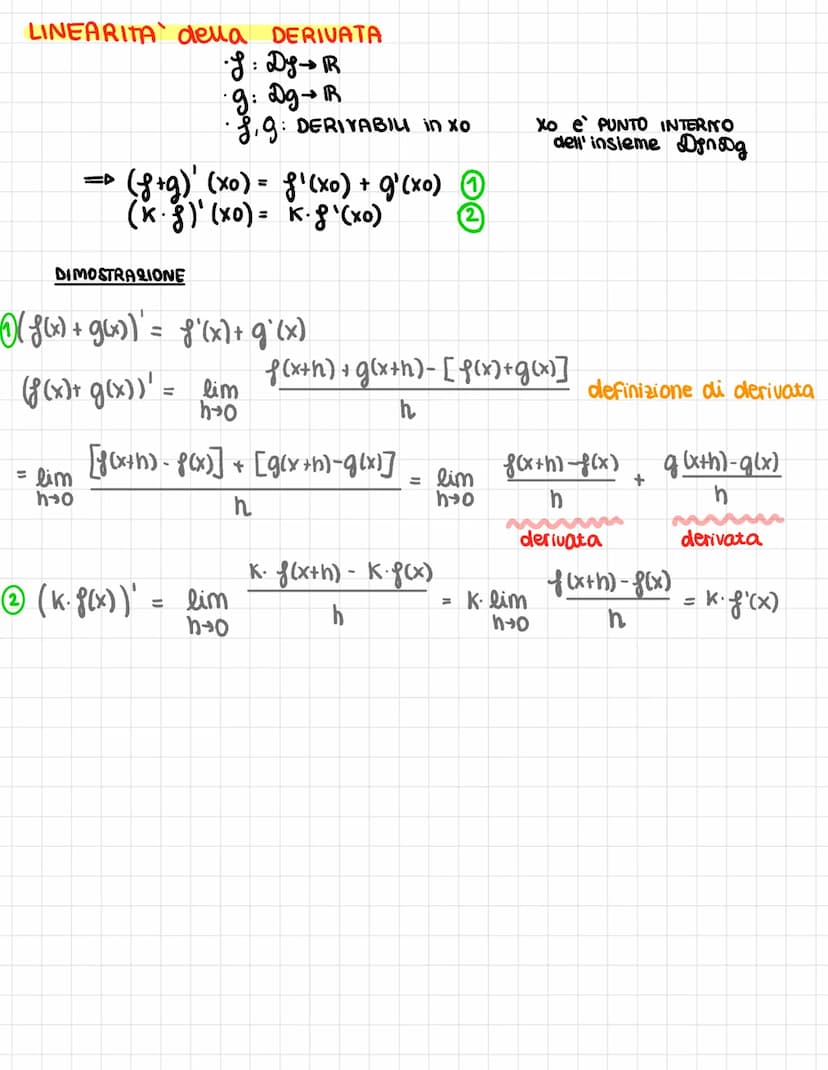 LINEARITA` della DERIVATA
· f : Df → R
· g : Dg → R
· f, g : DERIVABILI in x0
x0 e` PUNTO INTERNO
dell'insieme Df∩Dg
⇒ (f+g)' (x0) = f'(x0) + g'(x0) ①
(K·f)' (x0) = K·f'(x0) ②
DIMOSTRAZIONE
① (f(x) + g(x))' = f'(x) + g'(x)
(f(x) + g(x))' = lim h→0 f(x+h) + g(x+h) - [f(x)+g(x)] / h definizione di derivata
= lim h→0 [f(x+h) - f(x)] + [g(x+h) - g(x)] / h = lim h→0 f(x+h) - f(x) / h + g(x+h) - g(x) / h
derivata derivata
② (K·f(x))' = lim h→0 K·f(x+h) - K·f(x) / h = K·lim h→0 f(x+h) - f(x) / h = K·f'(x)